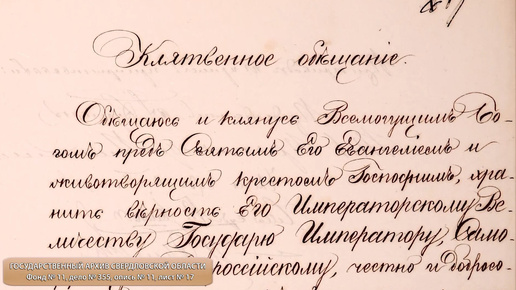 Клятвенное обѣщаніе.
Обѣщаюсь и клянусь Всемогущимъ Бо-
гомъ предъ Святымъ Его Евангелiемъ и
животворящимъ крестомъ Господнимъ, хра-
нить вѣрность Его Императорскому Ве-
личеству Государю Императору, Само-
россійскому, честно и добросо-
ГОСУДАРСТВЕННЫЙ АРХИВ СВЕРДЛОВСКОЙ ОБЛАСТИ
Фонд № 11, дело № 355, опись № 11, лист № 17